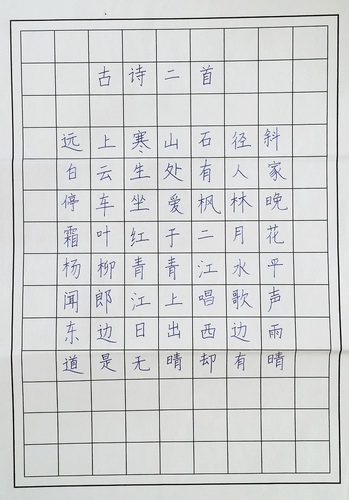 古诗二首
远上寒山石径斜
白云生处有人家
停车坐爱枫林晚
霜叶红于二月花
杨柳青青江水平
闻郎江上唱歌声
东边日出西边雨
道是无晴却有晴